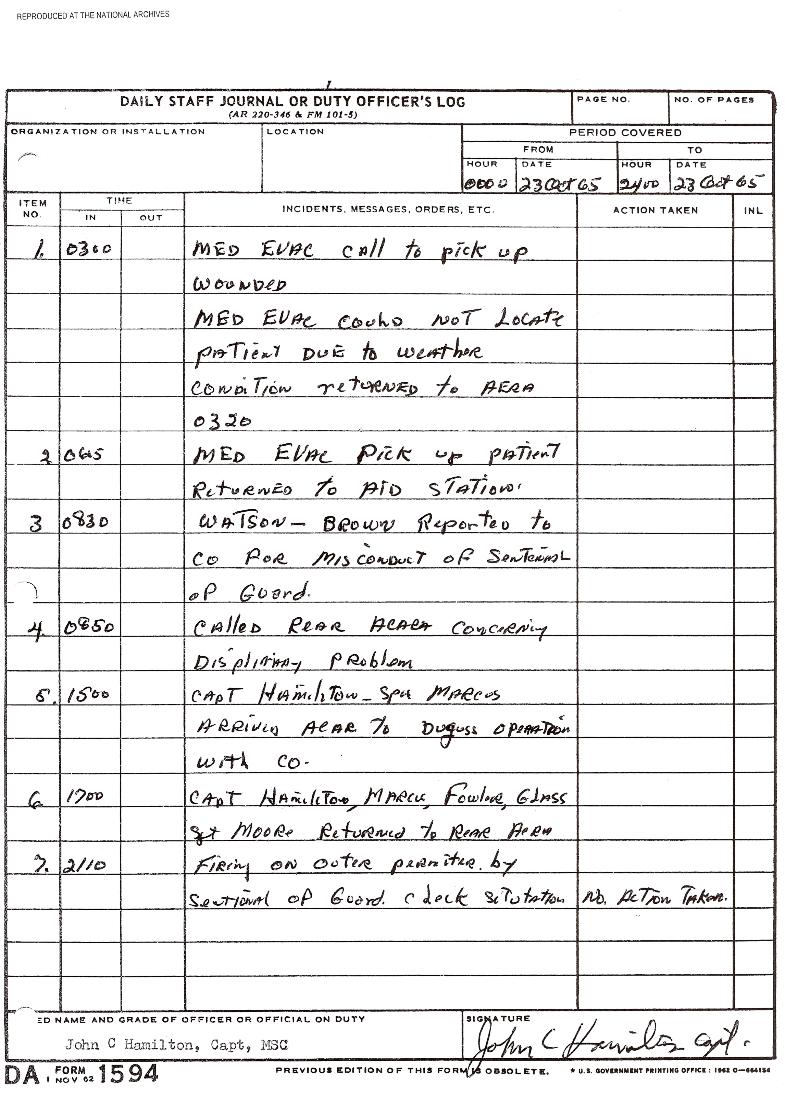 REPRODUCED AT THE NATIONAL ARCHIVES
1
DAILY STAFF JOURNAL OR DUTY OFFICER'S LOG
(AR 220-346 & FM 101-5)
PAGE NO.
NO. OF PAGES
ORGANIZATION OR INSTALLATION
LOCATION
PERIOD COVERED
FROM
TO
HOUR DATE HOUR DATE
0000 23 Oct 65 2400 23 Oct 65
ITEM NO.
TIME
IN OUT
INCIDENTS, MESSAGES, ORDERS, ETC.
ACTION TAKEN
INL
1. 0300 MED EVAC CAll to pick up
WOUNDED
MED EVAC COULD NOT LOCATE
PATIENT DUE to WEATHER
CONDITION returNED to AERA
0320
2 0645 MED EVAC PICK up PATIENT
RETURNED TO AID STATION.
3 0830 WATSON - BROWN Reported to
CO FOR MISCONDUCT OF SENTENIAL
OF Guard.
4. 0850 CAlled REAR
CONCERNING
DISPlINARY PROBlem
5. 1500 CAPT HAMILTON - SP4 MARCUS
ARRIVED
TO
OPERATION
WITH CO.
6 1700 CAPT HAMILTON, MARCUS, Fowler, GLASS
Sgt MOORE RETURNED TO REAR AERA
7. 2110 FIRING ON OUTER PERMITER by
OF Guard. CHECK SITUTATION NO. ACTION TAKEN.
ED NAME AND GRADE OF OFFICER OR OFFICIAL ON DUTY
John C Hamilton, Capt, MSC
SIGNATURE
John C Hamilton Capt.
DA FORM 1 NOV 62 1594
PREVIOUS EDITION OF THIS FORM IS OBSOLETE.
* U.S. GOVERNMENT PRINTING OFFICE: 1962 O-664154